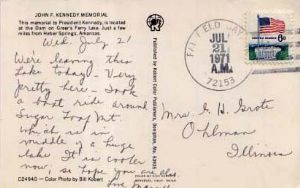 JOHN F. KENNEDY MEMORIAL
This memorial to President Kennedy, is located
at the Dam on Greer's Ferry Lake. Just a few
miles from Heber Springs, Arkansas.
Wed. July 21
We're leaving this
Lake today - Very
pretty here - Took
a boat ride around
Sugar Loaf Mt.
which is in
middle of a huge
lake. It is cooler
now, so hope you are
C24940 - Color Photo by Bill Kobert
JUL
21
1971
A.M.
72153
6c
Mrs. G H Grote
Ohlman
Illinois